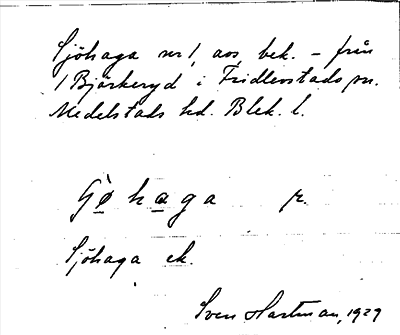 Sjöhaga nr 1, avs, bek. – från
1 Björkeryd i Fridlevstads sn.
Medelstads hd. Blek. l.
haga
Sjöhaga ek.
Sven Hartman, 1929